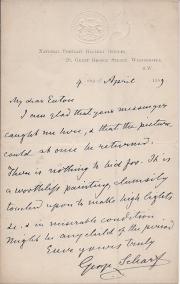 National Portrait Gallery Offices,
20, Great George Street, Westminster,
S.W.
9 day of April 1889
My dear Eaton
I am glad that your messenger
caught me here, & that the picture
could at once be returned.
There is nothing to bid for. It is
a worthless painting, clumsily
touched upon to make high lights
&c. & in miserable condition
Might be any child of the period
Ever yours truly
George Scharf